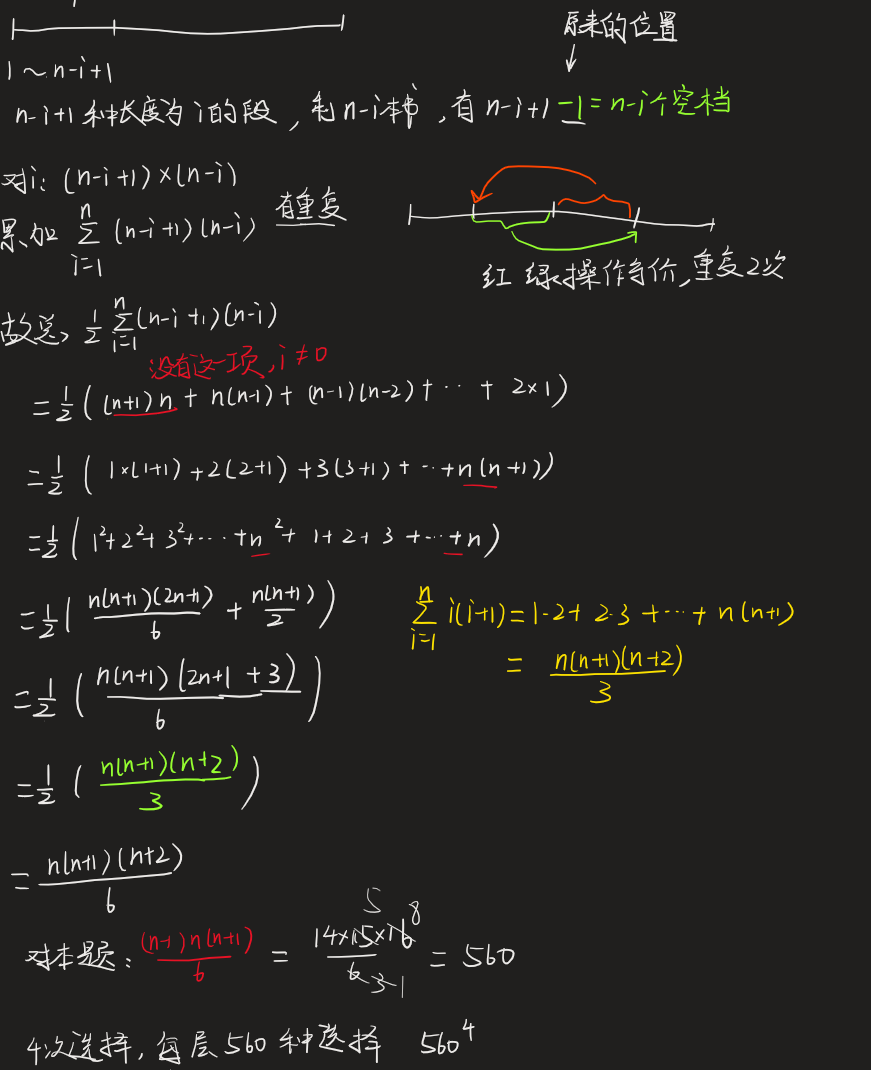 原来的位置
↓
1 ~ n-i+1
n-i+1 种长度为 i 的段, 剩 n-i 本书, 有 n-i+1 -1 = n-i 个空档
对i: (n-i+1)×(n-i)
累加 \sum_{i=1}^{n} (n-i+1)(n-i) 有重复
红 绿操作等价, 重复2次
故总, \frac{1}{2} \sum_{i=1}^{n} (n-i+1)(n-i)
没有这一项, i≠0
= \frac{1}{2} ( (n+1)n + n(n-1) + (n-1)(n-2) + ·· + 2×1 )
= \frac{1}{2} ( 1×(1+1) + 2(2+1) + 3(3+1) + ··· + n(n+1) )
= \frac{1}{2} ( 1^2 + 2^2 + 3^2 + ··· + n^2 + 1 + 2 + 3 + ··· + n )
= \frac{1}{2} ( \frac{n(n+1)(2n+1)}{6} + \frac{n(n+1)}{2} )
\sum_{i=1}^{n} i(i+1) = 1·2 + 2·3 + ··· + n(n+1)
= \frac{n(n+1)(n+2)}{3}
= \frac{1}{2} ( \frac{n(n+1)(2n+1+3)}{6} )
= \frac{1}{2} ( \frac{n(n+1)(n+2)}{3} )
= \frac{n(n+1)(n+2)}{6}
5 8
对本题: \frac{(n-1)n(n+1)}{6} = \frac{14×15×16}{6} = 560
3 1
4次选择, 每层560种选择 560^4